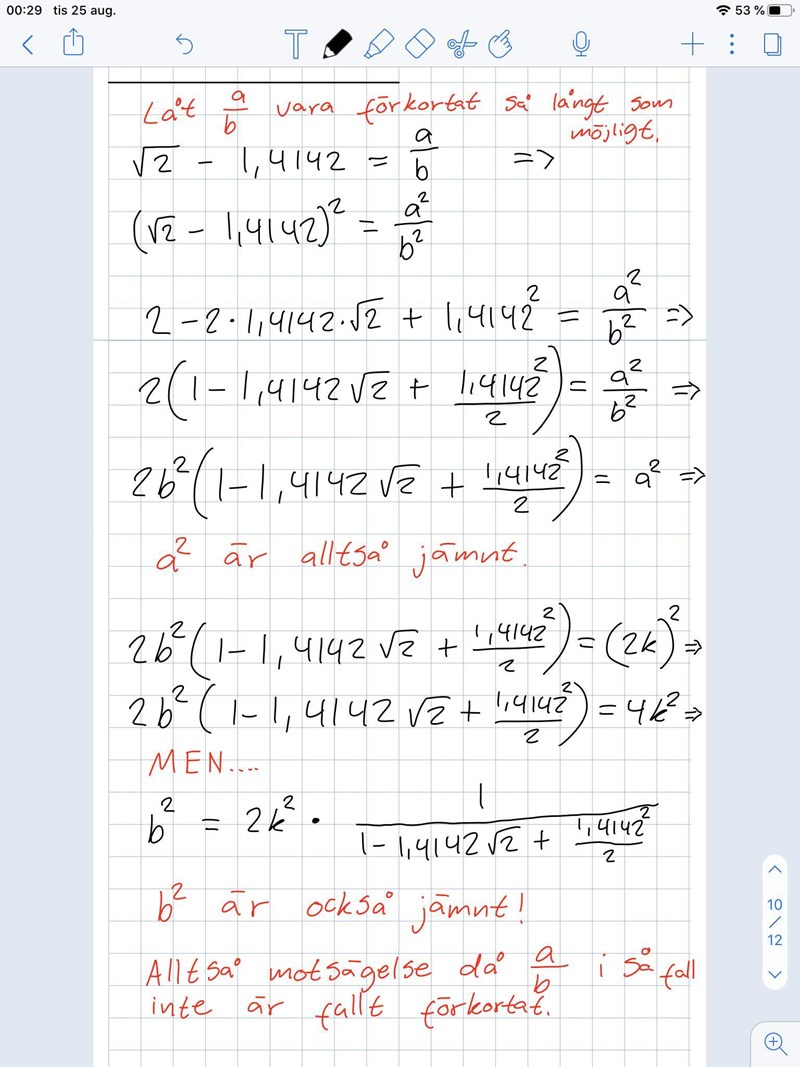 00:29 tis 25 aug. 53 %
Låt a/b vara förkortat så långt som
möjligt.
√2 - 1,4142 = a/b =>
(√2 - 1,4142)² = a²/b²
2 - 2·1,4142·√2 + 1,4142² = a²/b² =>
2(1 - 1,4142√2 + 1,4142²/2) = a²/b² =>
2b²(1 - 1,4142√2 + 1,4142²/2) = a² =>
a² är alltså jämnt.
2b²(1 - 1,4142√2 + 1,4142²/2) = (2k)² =>
2b²(1 - 1,4142√2 + 1,4142²/2) = 4k² =>
MEN....
b² = 2k² · 1/(1 - 1,4142√2 + 1,4142²/2)
b² är också jämnt!
Alltså motsägelse då a/b i så fall
inte är fallt förkortat.
10
/
12